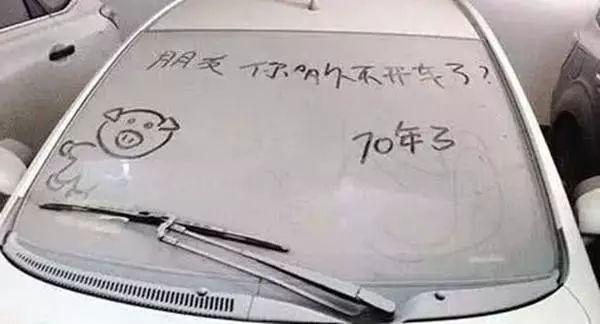 朋友 你多久不开车了？
10年了